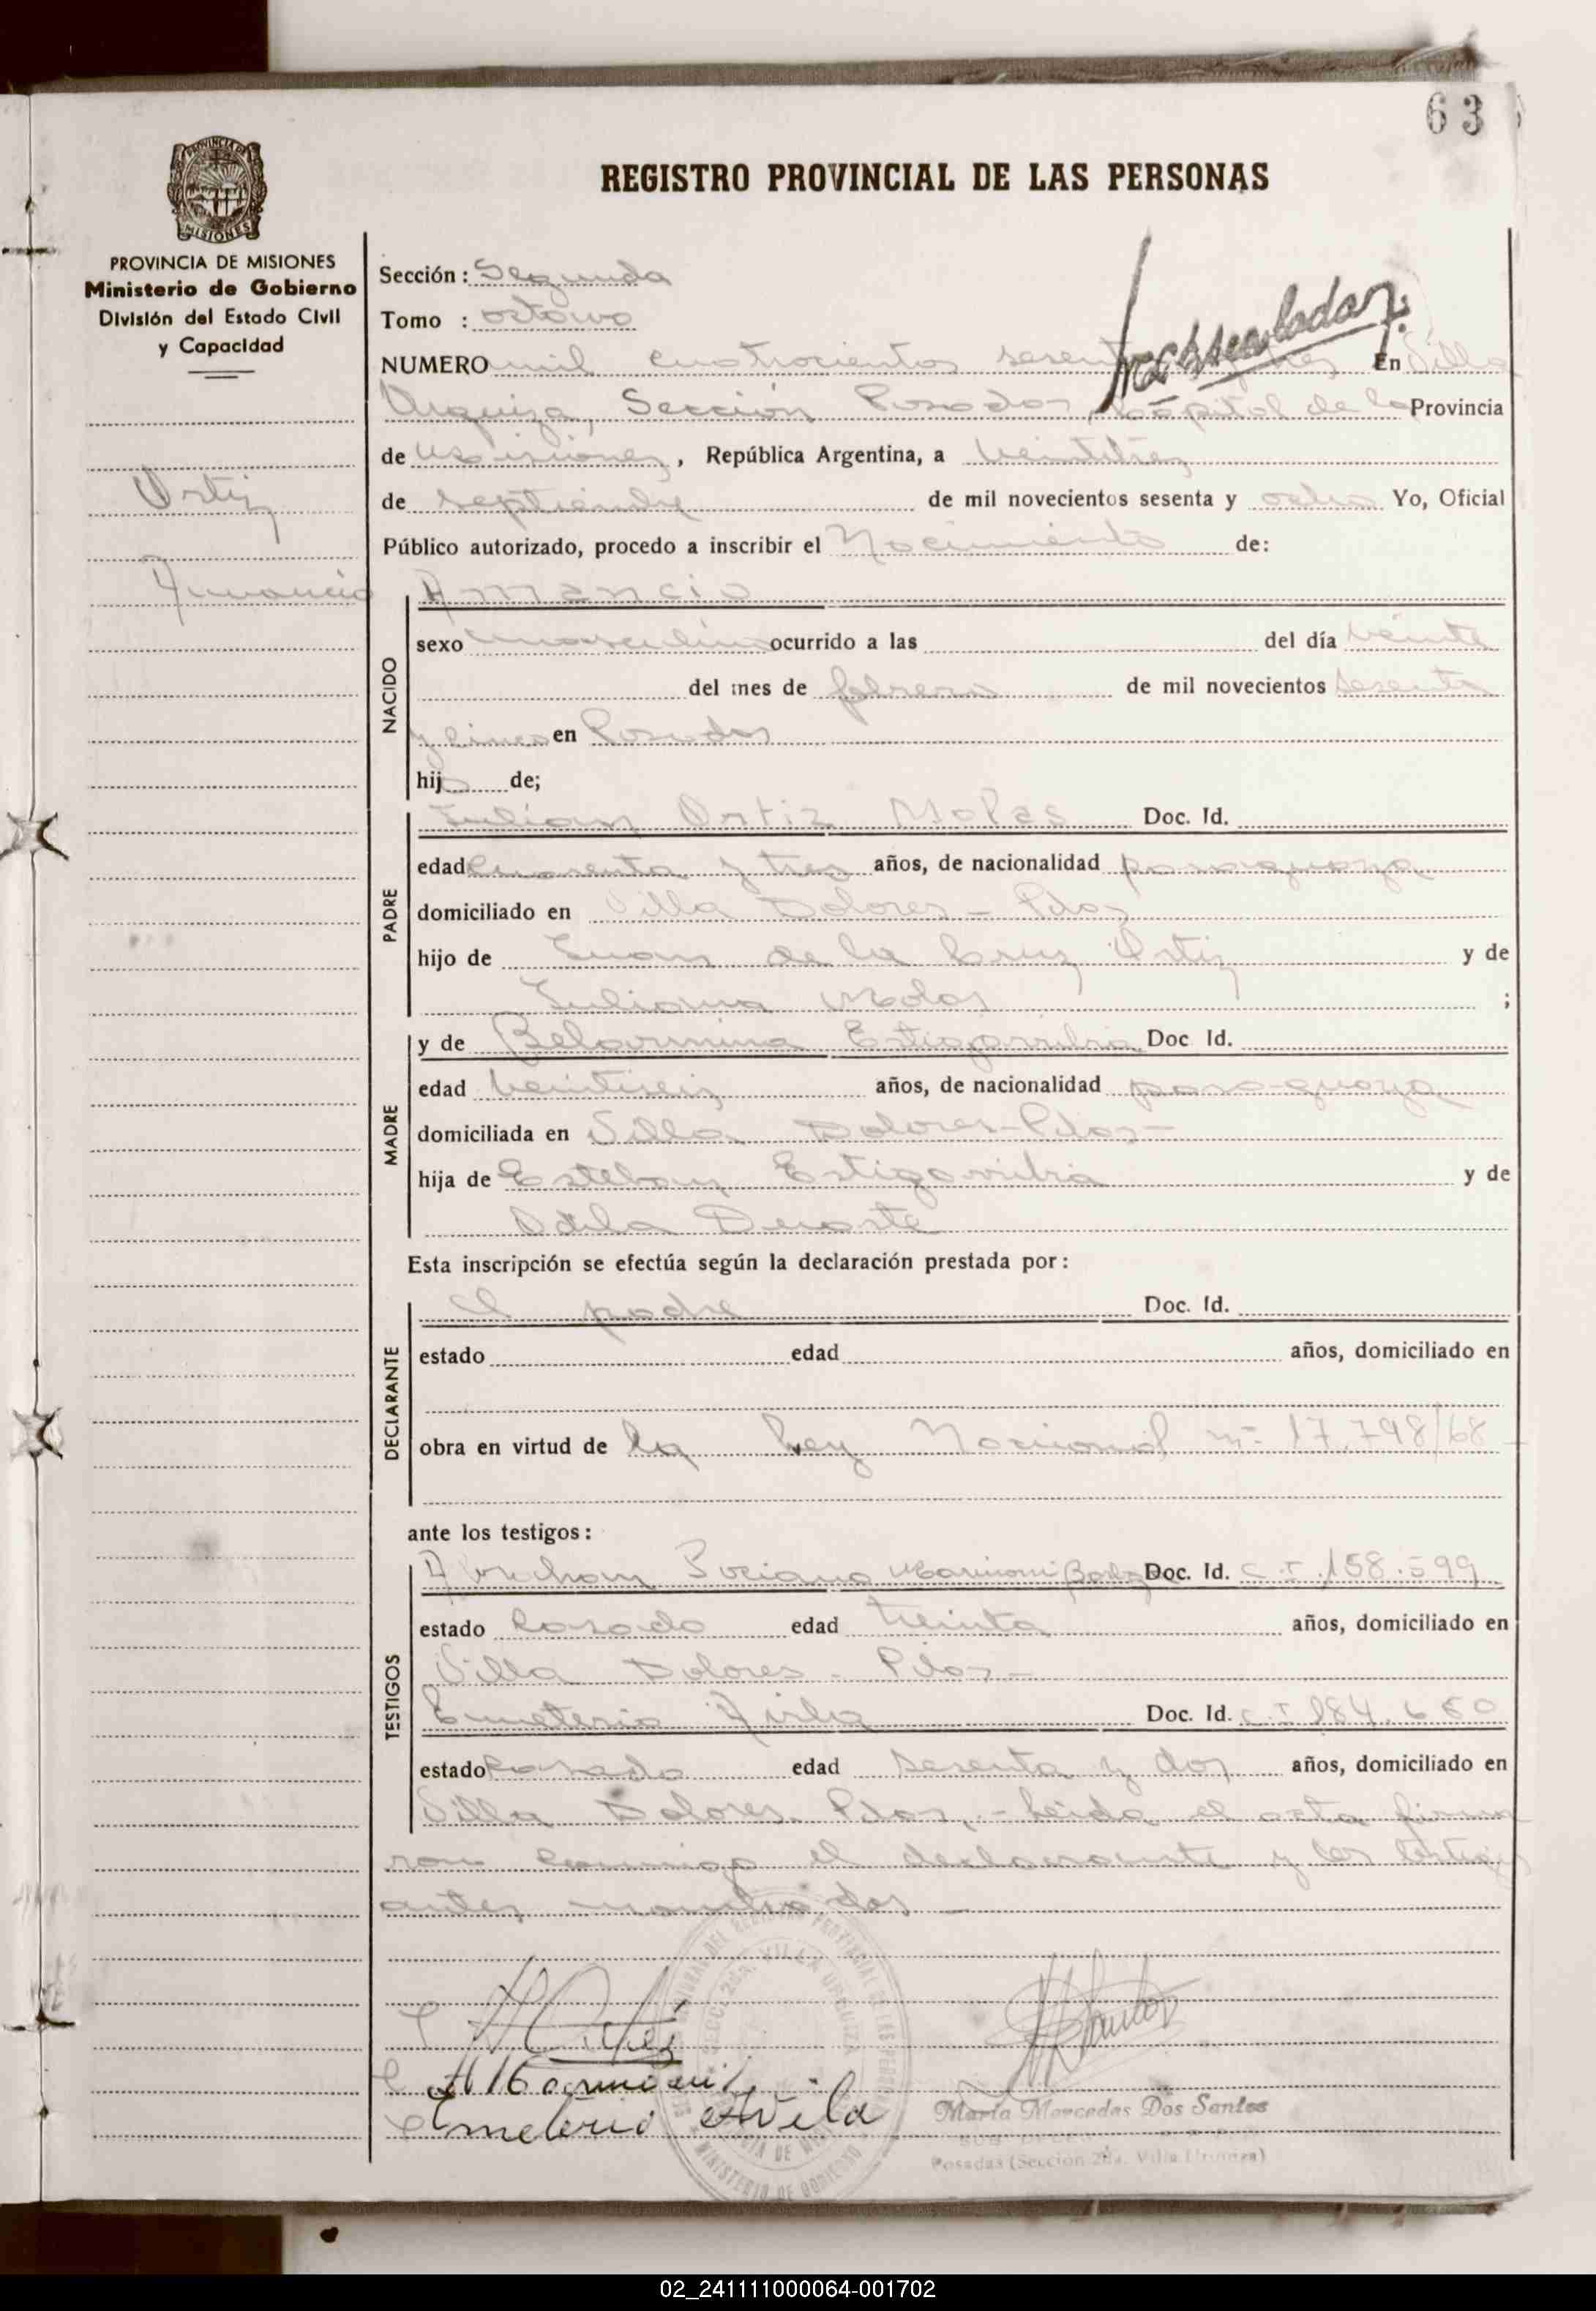 63
REGISTRO PROVINCIAL DE LAS PERSONAS
PROVINCIA DE MISIONES
MISIONES
PROVINCIA DE MISIONES
Ministerio de Gobierno
División del Estado Civil
y Capacidad
Ortiz
Amancio
Sección: Segunda
Tomo : octavo
NUMERO mil cuatrocientos En Villa
Urquiza, Sección Posadas, Capital de la Provincia
de Misiones, República Argentina, a veintitrez
de septiembre de mil novecientos sesenta y ocho Yo, Oficial
Público autorizado, procedo a inscribir el Nacimiento de:
NACIDO
Amancio
sexo masculino ocurrido a las del día veinte
del mes de febrero de mil novecientos sesenta
y cinco en Posadas
hijo de;
PADRE
Julian Ortiz Molas Doc. Id.
edad cuarenta y tres años, de nacionalidad paraguaya
domiciliado en Villa Dolores - Pdas
hijo de Juan de la Cruz Ortiz y de
Juliana Molas ;
MADRE
y de Belarmina Estigarribia Doc Id.
edad veintiseis años, de nacionalidad paraguaya
domiciliada en Villa Dolores - Pdas -
hija de Esteban Estigarribia y de
Odila Duarte
Esta inscripción se efectúa según la declaración prestada por:
DECLARANTE
el padre Doc. Id.
estado edad años, domiciliado en
obra en virtud de la Ley Nacional nº 17.798/68 -
ante los testigos:
TESTIGOS
Abraham Marinoni Doc. Id. C.I. 158.599
estado Casado edad treinta años, domiciliado en
Villa Dolores - Pdas -
Emeterio Avila Doc. Id. C.I. 184.650
estado Casado edad sesenta y dos años, domiciliado en
Villa Dolores Pdas, - Leida el acta firma
ron conmigo el declarante y los testigos
antes nombrados -
Emeterio Avila
Maria Mercedes Dos Santos
Posadas (Sección 2da. Villa Urquiza)
02_241111000064-001702